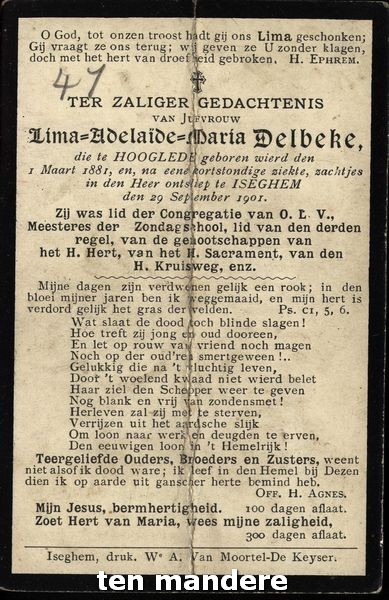 O God, tot onzen troost hadt gij ons Lima geschonken;
Gij vraagt ze ons terug; wij geven ze U zonder klagen,
doch met het hert van droefheid gebroken. H. EPHREM.
47
TER ZALIGER GEDACHTENIS
VAN JUFVROUW
Lima=Adelaïde=Maria Delbeke,
die te HOOGLEDE geboren wierd den
1 Maart 1881, en, na eene kortstondige ziekte, zachtjes
in den Heer ontsliep te ISEGHEM
den 29 September 1901.
Zij was lid der Congregatie van O. L. V.,
Meesteres der Zondagschool, lid van den derden
regel, van de genootschappen van
het H. Hert, van het H. Sacrament, van den
H. Kruisweg, enz.
Mijne dagen zijn verdwenen gelijk een rook; in den
bloei mijner jaren ben ik weggemaaid, en mijn hert is
verdord gelijk het gras der velden. Ps. CI, 5, 6.
Wat slaat de dood toch blinde slagen!
Hoe treft zij jong en oud dooreen,
En let op rouw van vriend noch magen
Noch op der oud'ren smertgeween!..
Gelukkig die na 't vluchtig leven,
Door 't woelend kwaad niet wierd belet
Haar ziel den Schepper weer te geven
Nog blank en vrij van zondensmet!
Herleven zal zij met te sterven,
Verrijzen uit het aardsche slijk
Om loon naar werk en deugden te erven,
Den eeuwigen loon in 't Hemelrijk!
Teergeliefde Ouders, Broeders en Zusters, weent
niet alsof ik dood ware; ik leef in den Hemel bij Dezen
dien ik op aarde uit ganscher herte bemind heb.
OFF. H. AGNES.
Mijn Jesus, bermhertigheid. 100 dagen aflaat.
Zoet Hert van Maria, wees mijne zaligheid,
300 dagen aflaat.
Iseghem, druk. We A. Van Moortel-De Keyser.
ten mandere